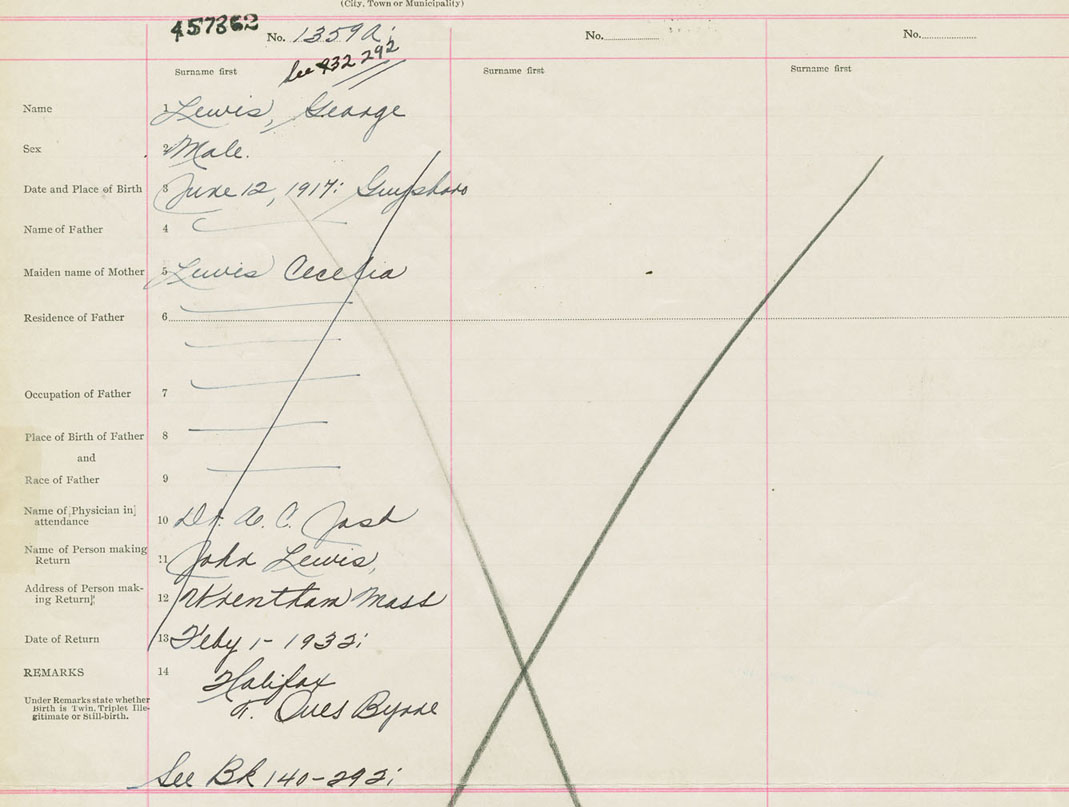 (City, Town or Municipality)
457362
No. 1359A
No.
No.
See 932 292
Surname first
Surname first
Surname first
Name 1 Lewis, George
Sex 2 Male.
Date and Place of Birth 3 June 12, 1917: Guysboro
Name of Father 4
Maiden name of Mother 5 Lewis Cecelia
Residence of Father 6
Occupation of Father 7
Place of Birth of Father 8
and
Race of Father 9
Name of Physician in
attendance 10 Dr. A. C. Jost
Name of Person making
Return 11 John Lewis,
Address of Person mak-
ing Return 12 Wrentham Mass
Date of Return 13 Feby 1 - 1932:
REMARKS 14 Halifax
Under Remarks state whether
Birth is Twin, Triplet Ille-
gitimate or Still-birth.
Byrne
See Bk 140-292: